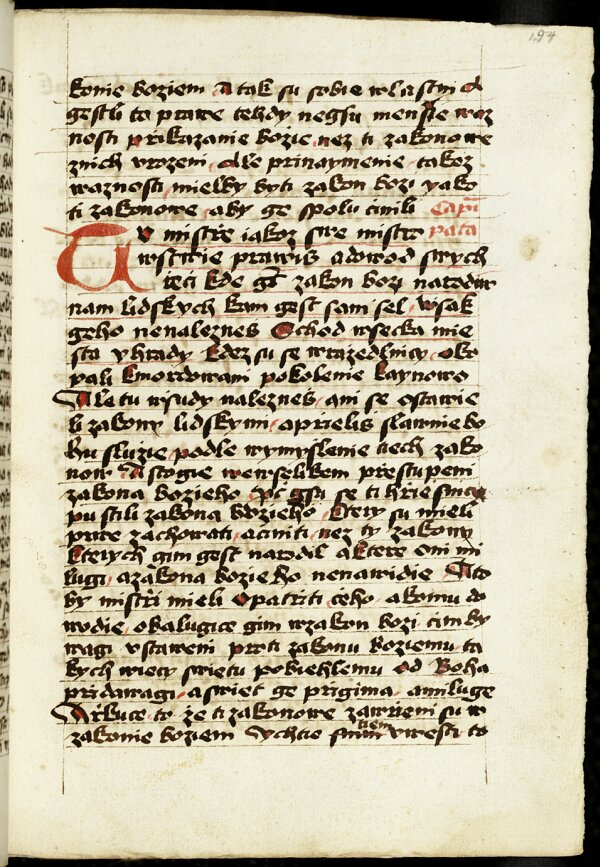 194
konie boziem A tak su sobie wlastni a
gestli to prawe tehdy negsu mensie waz
nosti prikazanie bozie nez ti zakonowe
znich urozeni Ale prinaymenie takez
waznosti mielby byti zakon bozi yako
ti zakonowe aby ge spolu cinili Capi
Tu mistře iakoz swe mistro pata
wstwie prawis a dowod swych
reci kde gt zakon bozi narodiw
nam lidskych kam gest sam sel wsak
geho nenaleznes Schod wsecka mie
sta y hrady kdez su se wrazedlnicy oko
pali kmordowani pokolenie kaynowo
Ale tu wsudy naleznes ani se ostawie
li zakony lidskymi a prielis slawnie bo
hu sluzie podle wymyslenie tiech zako
now A stogie wewselikem prestupeni
zakona bozieho gsu se ti hriesnici
pustili zakona bozieho ktery su mieli
prwe zachowati a ciniti nez ty zakony
kterych gim gest narodil a ktere oni mi
lugi a zakona bozieho nenawidie A to
by mistři mieli opatriti ceho a komu do
wodie obalugice gim wzakon bozi cim by
wagi ustaweni proti zakonu boziemu ta
kych wiecy swietu pobiehlemu od Boha
pridawagi a swiet ge prigima a miluge
Arkuce to ze ti zakonowe zawrieni su w
zakonie boziem Uchtie smiem uwesti to